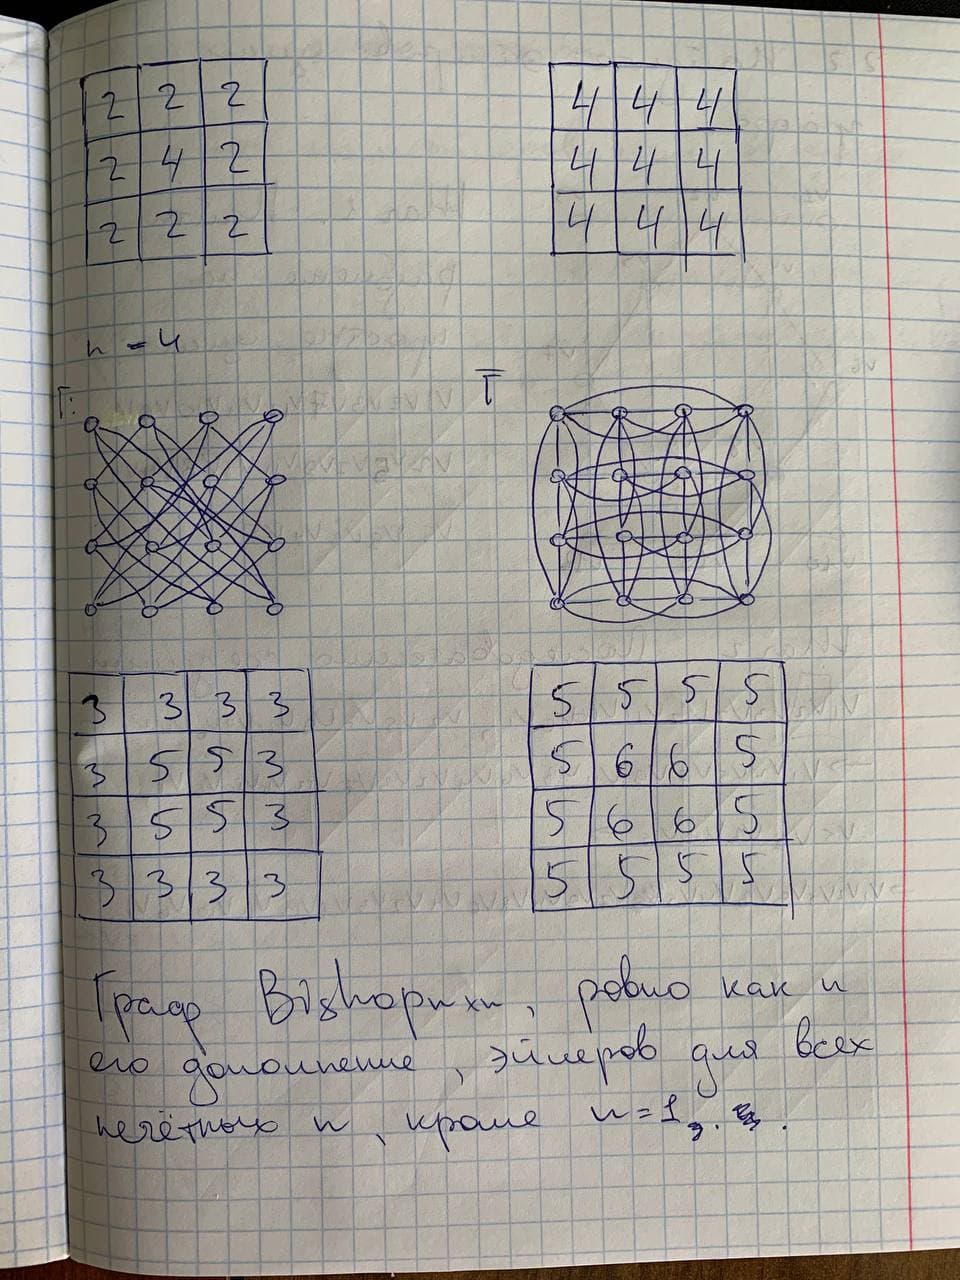 2 2 2
2 4 2
2 2 2
4 4 4
4 4 4
4 4 4
n = 4
Г:
Г̅
3 3 3 3
3 5 5 3
3 5 5 3
3 3 3 3
5 5 5 5
5 6 6 5
5 6 6 5
5 5 5 5
Граф Bishopnxn, ровно как и
его дополнение, эйлеров для всех
нечётных n, кроме n=1